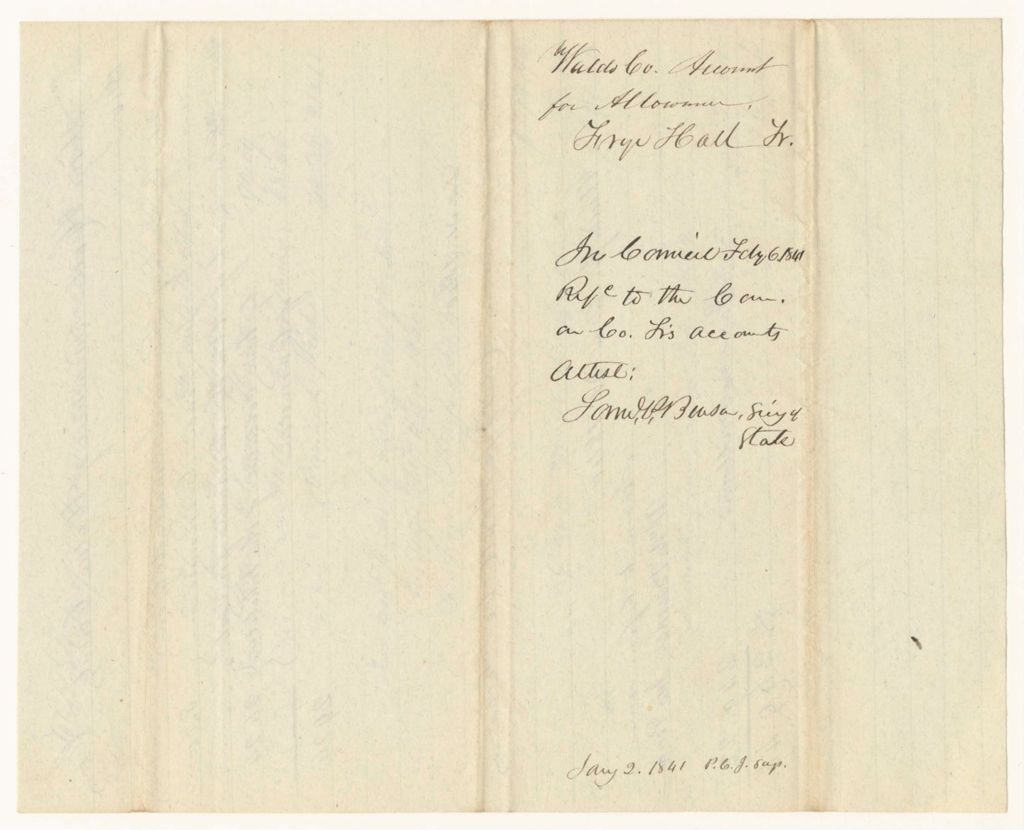 Waldo Co. Account
for Allowance.
Frye Hall Tr.
In Council Feby 6. 1841
Refd to the Com.
on Co. Tr's accounts
Attest:
Saml. P. Benson, Secy of
State
Jany 2. 1841 P. C. J. sap.